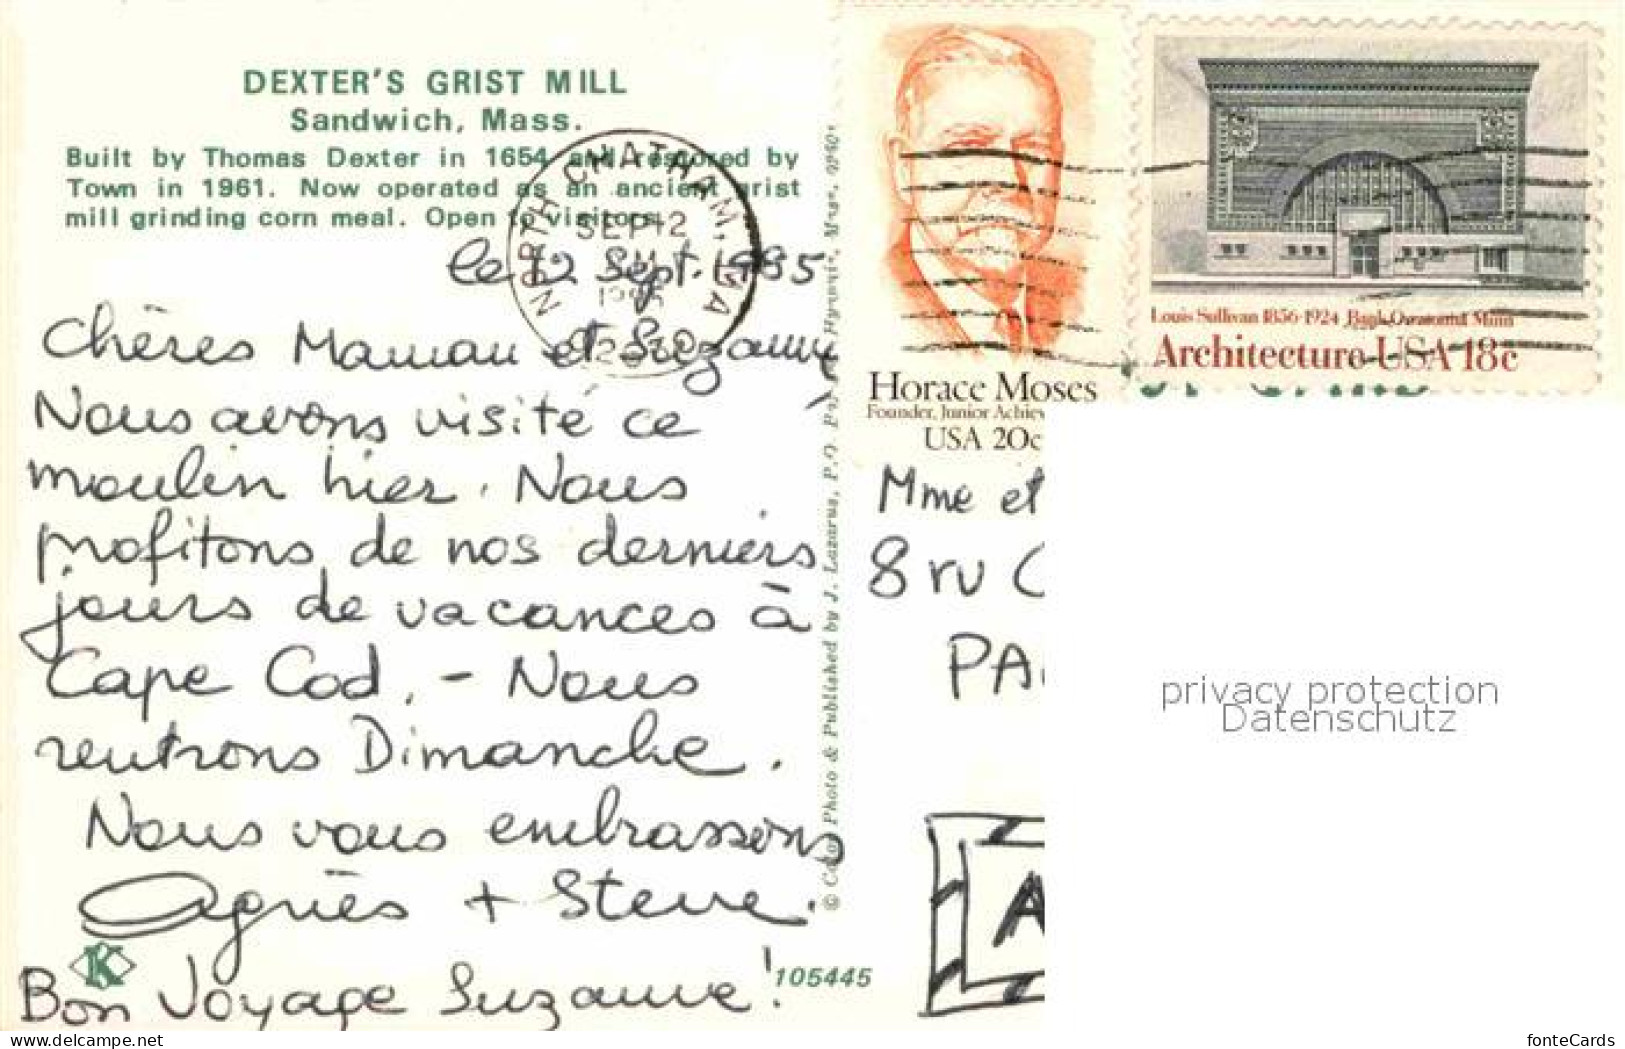 DEXTER'S GRIST MILL
Sandwich, Mass.
Built by Thomas Dexter in 1654 and restored by
Town in 1961. Now operated as an ancient grist
mill grinding corn meal. Open to visitors.
NORTH CHATHAM, MA
SEP 12
le 12 Sept. 1985
Chères Maman et Suzanne
Nous avons visité ce
moulin hier. Nous
profitons de nos derniers
jours de vacances à
Cape Cod. - Nous
rentrons Dimanche.
Nous vous embrassons
Agnès + Steve.
Bon Voyage Suzanne!
K
105445
© Color Photo & Published by J. Lazarus, P.O. Hyannis, Mass.
Horace Moses
Founder, Junior Achiev
USA 20c
Louis Sullivan 1856-1924 Bank Owatonna Minn
Architecture USA 18c
Mme et
8 ru
PA
A
privacy protection
Datenschutz
www.delcampe.net
fonteCards